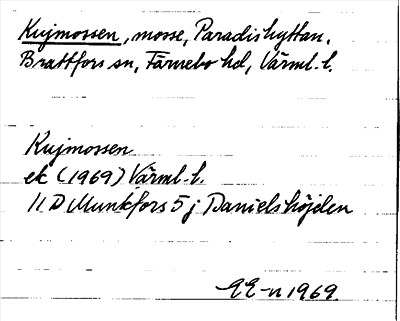 Kujmossen, mosse, Paradishyttan,
Brattfors sn, Färnebo hd, Värml. l.
Kujmossen
ek (1969) Värml. l.
11 D Munkfors 5 j Danielshöjden
EE-n 1969